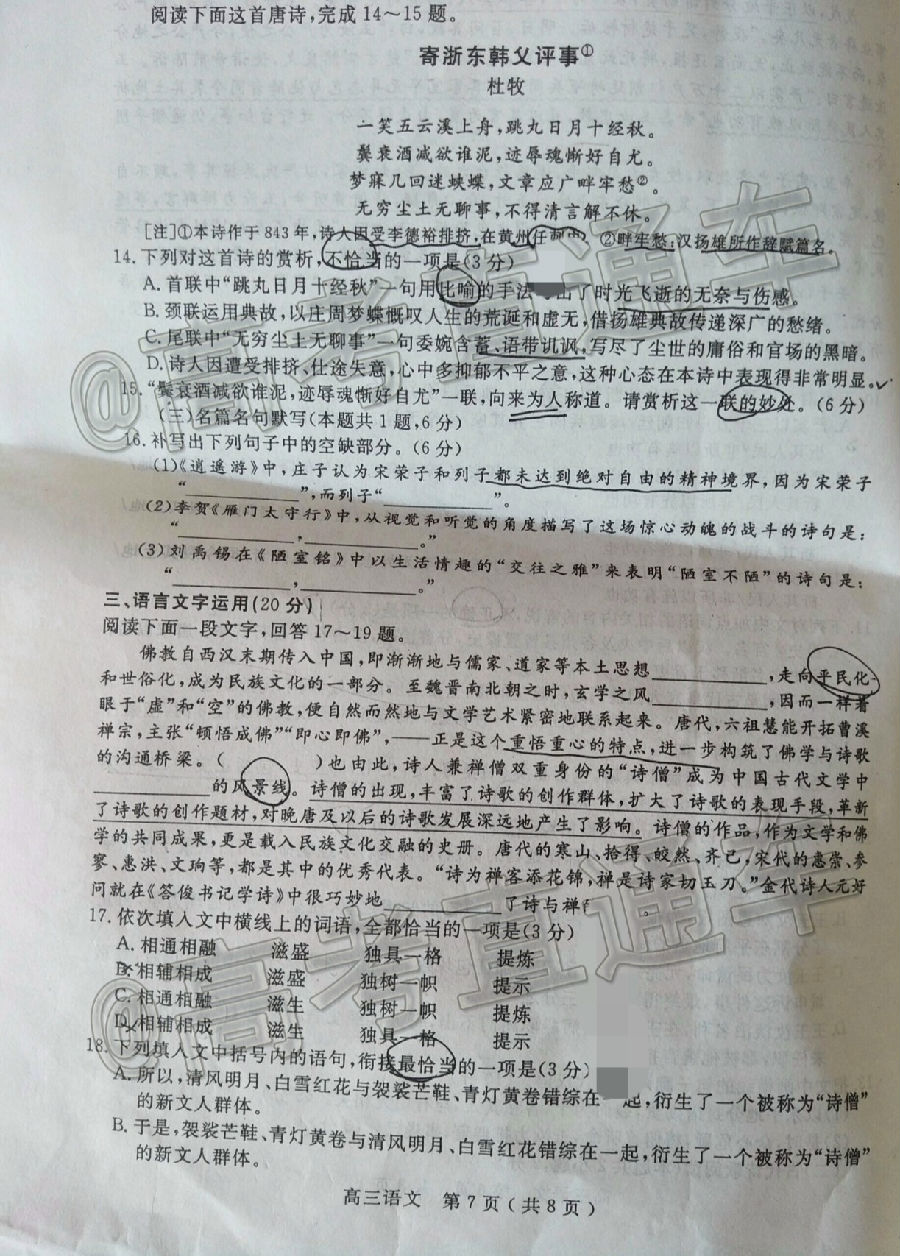 阅读下面这首唐诗,完成14～15题。
寄浙东韩乂评事①
杜牧
一笑五云溪上舟,跳丸日月十经秋。
鬓衰酒减欲谁泥,迹辱魂惭好自尤。
梦寐几回迷蛱蝶,文章应广畔牢愁②。
无穷尘土无聊事,不得清言解不休。
[注]①本诗作于843年,诗人因受李德裕排挤,在黄州任刺史。②畔牢愁:汉扬雄所作辞赋篇名。
14.下列对这首诗的赏析,不恰当的一项是(3分)
A.首联中“跳丸日月十经秋”一句用比喻的手法 出了时光飞逝的无奈与伤感。
B.颈联运用典故,以庄周梦蝶慨叹人生的荒诞和虚无,借扬雄典故传递深广的愁绪。
C.尾联中“无穷尘土无聊事”一句委婉含蓄、语带讥讽,写尽了尘世的庸俗和官场的黑暗。
D.诗人因遭受排挤、仕途失意,心中多抑郁不平之意,这种心态在本诗中表现得非常明显。
15.“鬓衰酒减欲谁泥,迹辱魂惭好自尤”一联,向来为人称道。请赏析这一联的妙处。(6分)
(三)名篇名句默写(本题共1题,6分)
16.补写出下列句子中的空缺部分。(6分)
(1)《逍遥游》中,庄子认为宋荣子和列子都未达到绝对自由的精神境界,因为宋荣子
“____________”,而列子“____________”。
(2)李贺《雁门太守行》中,从视觉和听觉的角度描写了这场惊心动魄的战斗的诗句是:
“____________,____________。”
(3)刘禹锡在《陋室铭》中以生活情趣的“交往之雅”来表明“陋室不陋”的诗句是:
“____________,____________。”
三、语言文字运用(20分)
阅读下面一段文字,回答17～19题。
佛教自西汉末期传入中国,即渐渐地与儒家、道家等本土思想____________,走向平民化
和世俗化,成为民族文化的一部分。至魏晋南北朝之时,玄学之风____________,因而一样着
眼于“虚”和“空”的佛教,便自然而然地与文学艺术紧密地联系起来。唐代,六祖慧能开拓曹溪
禅宗,主张“顿悟成佛”“即心即佛”,——正是这个重悟重心的特点,进一步构筑了佛学与诗歌
的沟通桥梁。( )也由此,诗人兼禅僧双重身份的“诗僧”成为中国古代文学中
____________的风景线。诗僧的出现,丰富了诗歌的创作群体,扩大了诗歌的表现手段,革新
了诗歌的创作题材,对晚唐及以后的诗歌发展深远地产生了影响。诗僧的作品,作为文学和佛
学的共同成果,更是载入民族文化交融的史册。唐代的寒山、拾得、皎然、齐己,宋代的惠崇、参
寥、惠洪、文珦等,都是其中的优秀代表。“诗为禅客添花锦,禅是诗家切玉刀。”金代诗人元好
问就在《答俊书记学诗》中很巧妙地____________了诗与禅
17.依次填入文中横线上的词语,全部恰当的一项是(3分)
A.相通相融 滋盛 独具一格 提炼
B.相辅相成 滋盛 独树一帜 提示
C.相通相融 滋生 独树一帜 提炼
D.相辅相成 滋生 独具一格 提示
18.下列填入文中括号内的语句,衔接最恰当的一项是(3分)
A.所以,清风明月、白雪红花与袈裟芒鞋、青灯黄卷错综在 起,衍生了一个被称为“诗僧”
的新文人群体。
B.于是,袈裟芒鞋、青灯黄卷与清风明月、白雪红花错综在一起,衍生了一个被称为“诗僧”
的新文人群体。
高三语文 第7页(共8页)
@高考直通车
@高考直通车